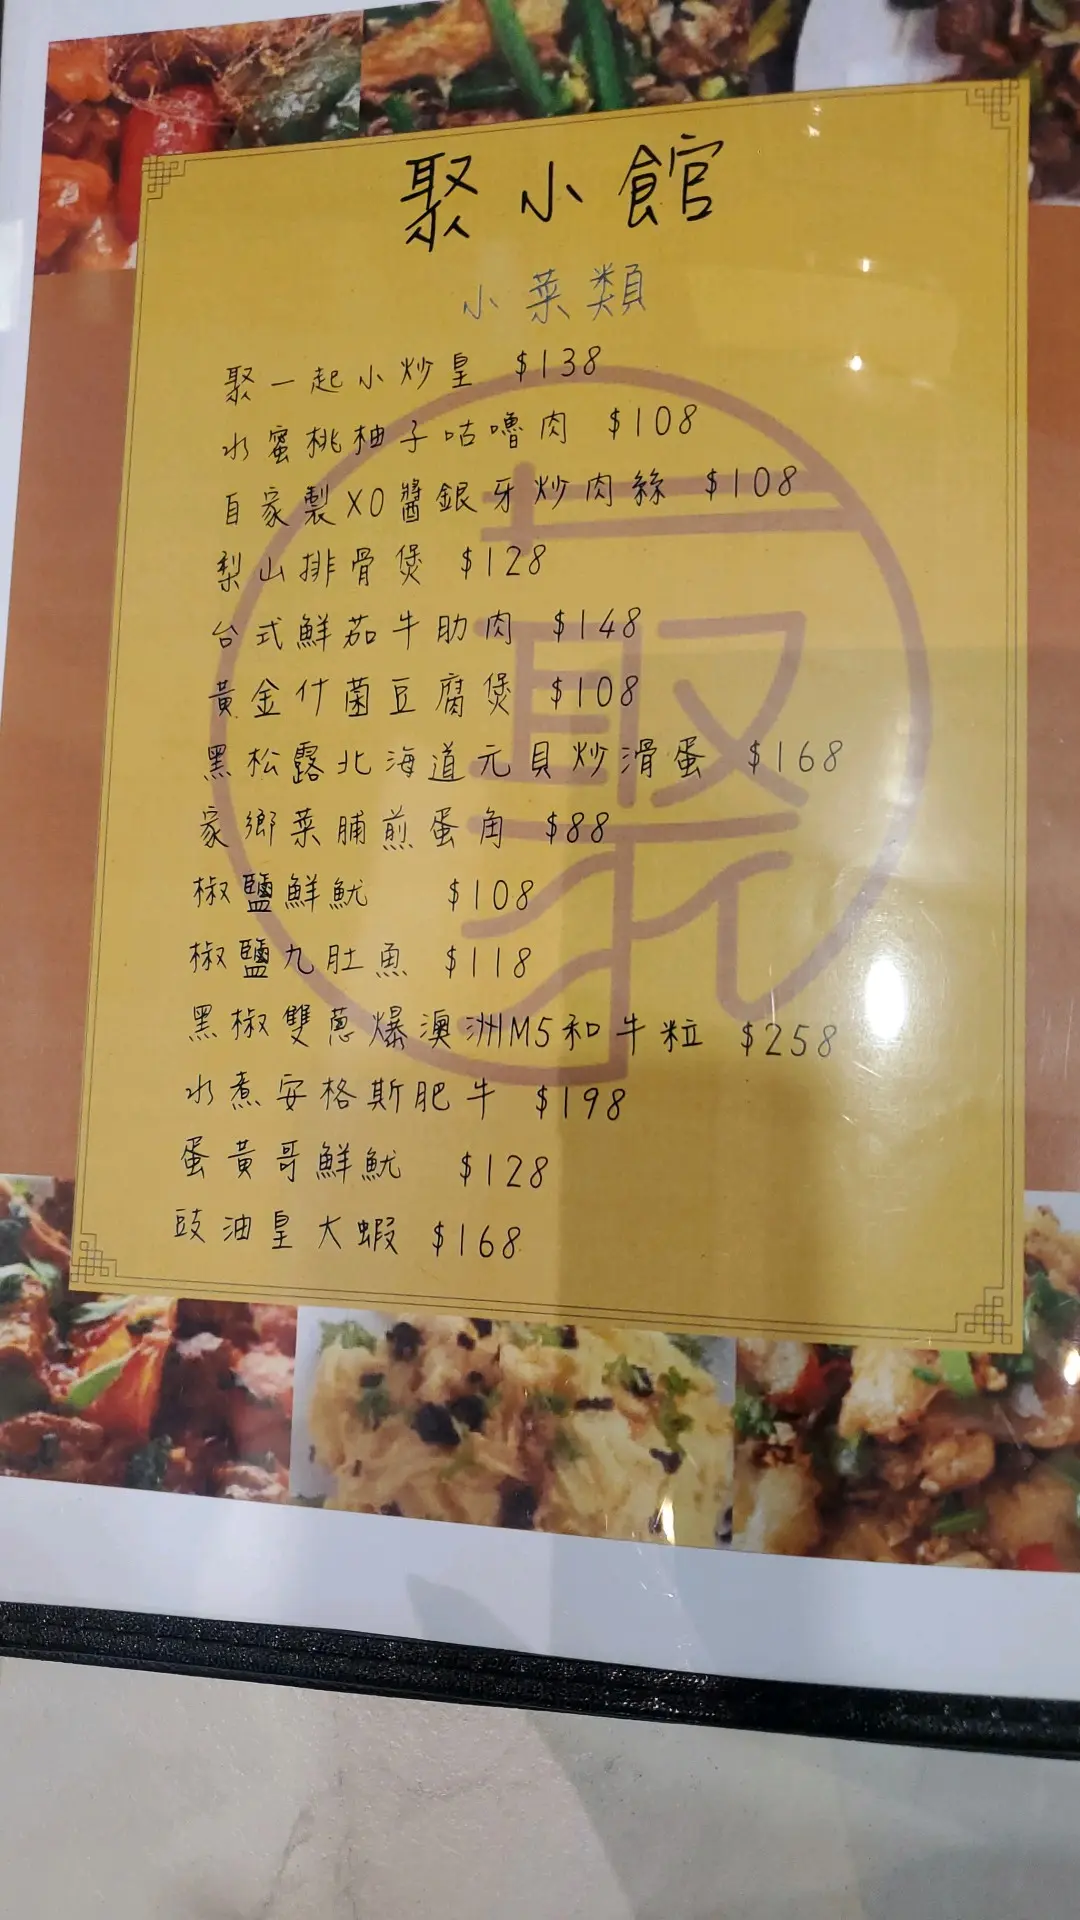 聚小館
小菜類
聚一起小炒皇 $138
水蜜桃柚子咕嚕肉 $108
自家製XO醬銀牙炒肉絲 $108
梨山排骨煲 $128
台式鮮茄牛肋肉 $148
黃金什菌豆腐煲 $108
黑松露北海道元貝炒滑蛋 $168
家鄉菜脯煎蛋角 $88
椒鹽鮮魷 $108
椒鹽九肚魚 $118
黑椒雙蔥爆澳洲M5和牛粒 $258
水煮安格斯肥牛 $198
蛋黃哥鮮魷 $128
豉油皇大蝦 $168
聚